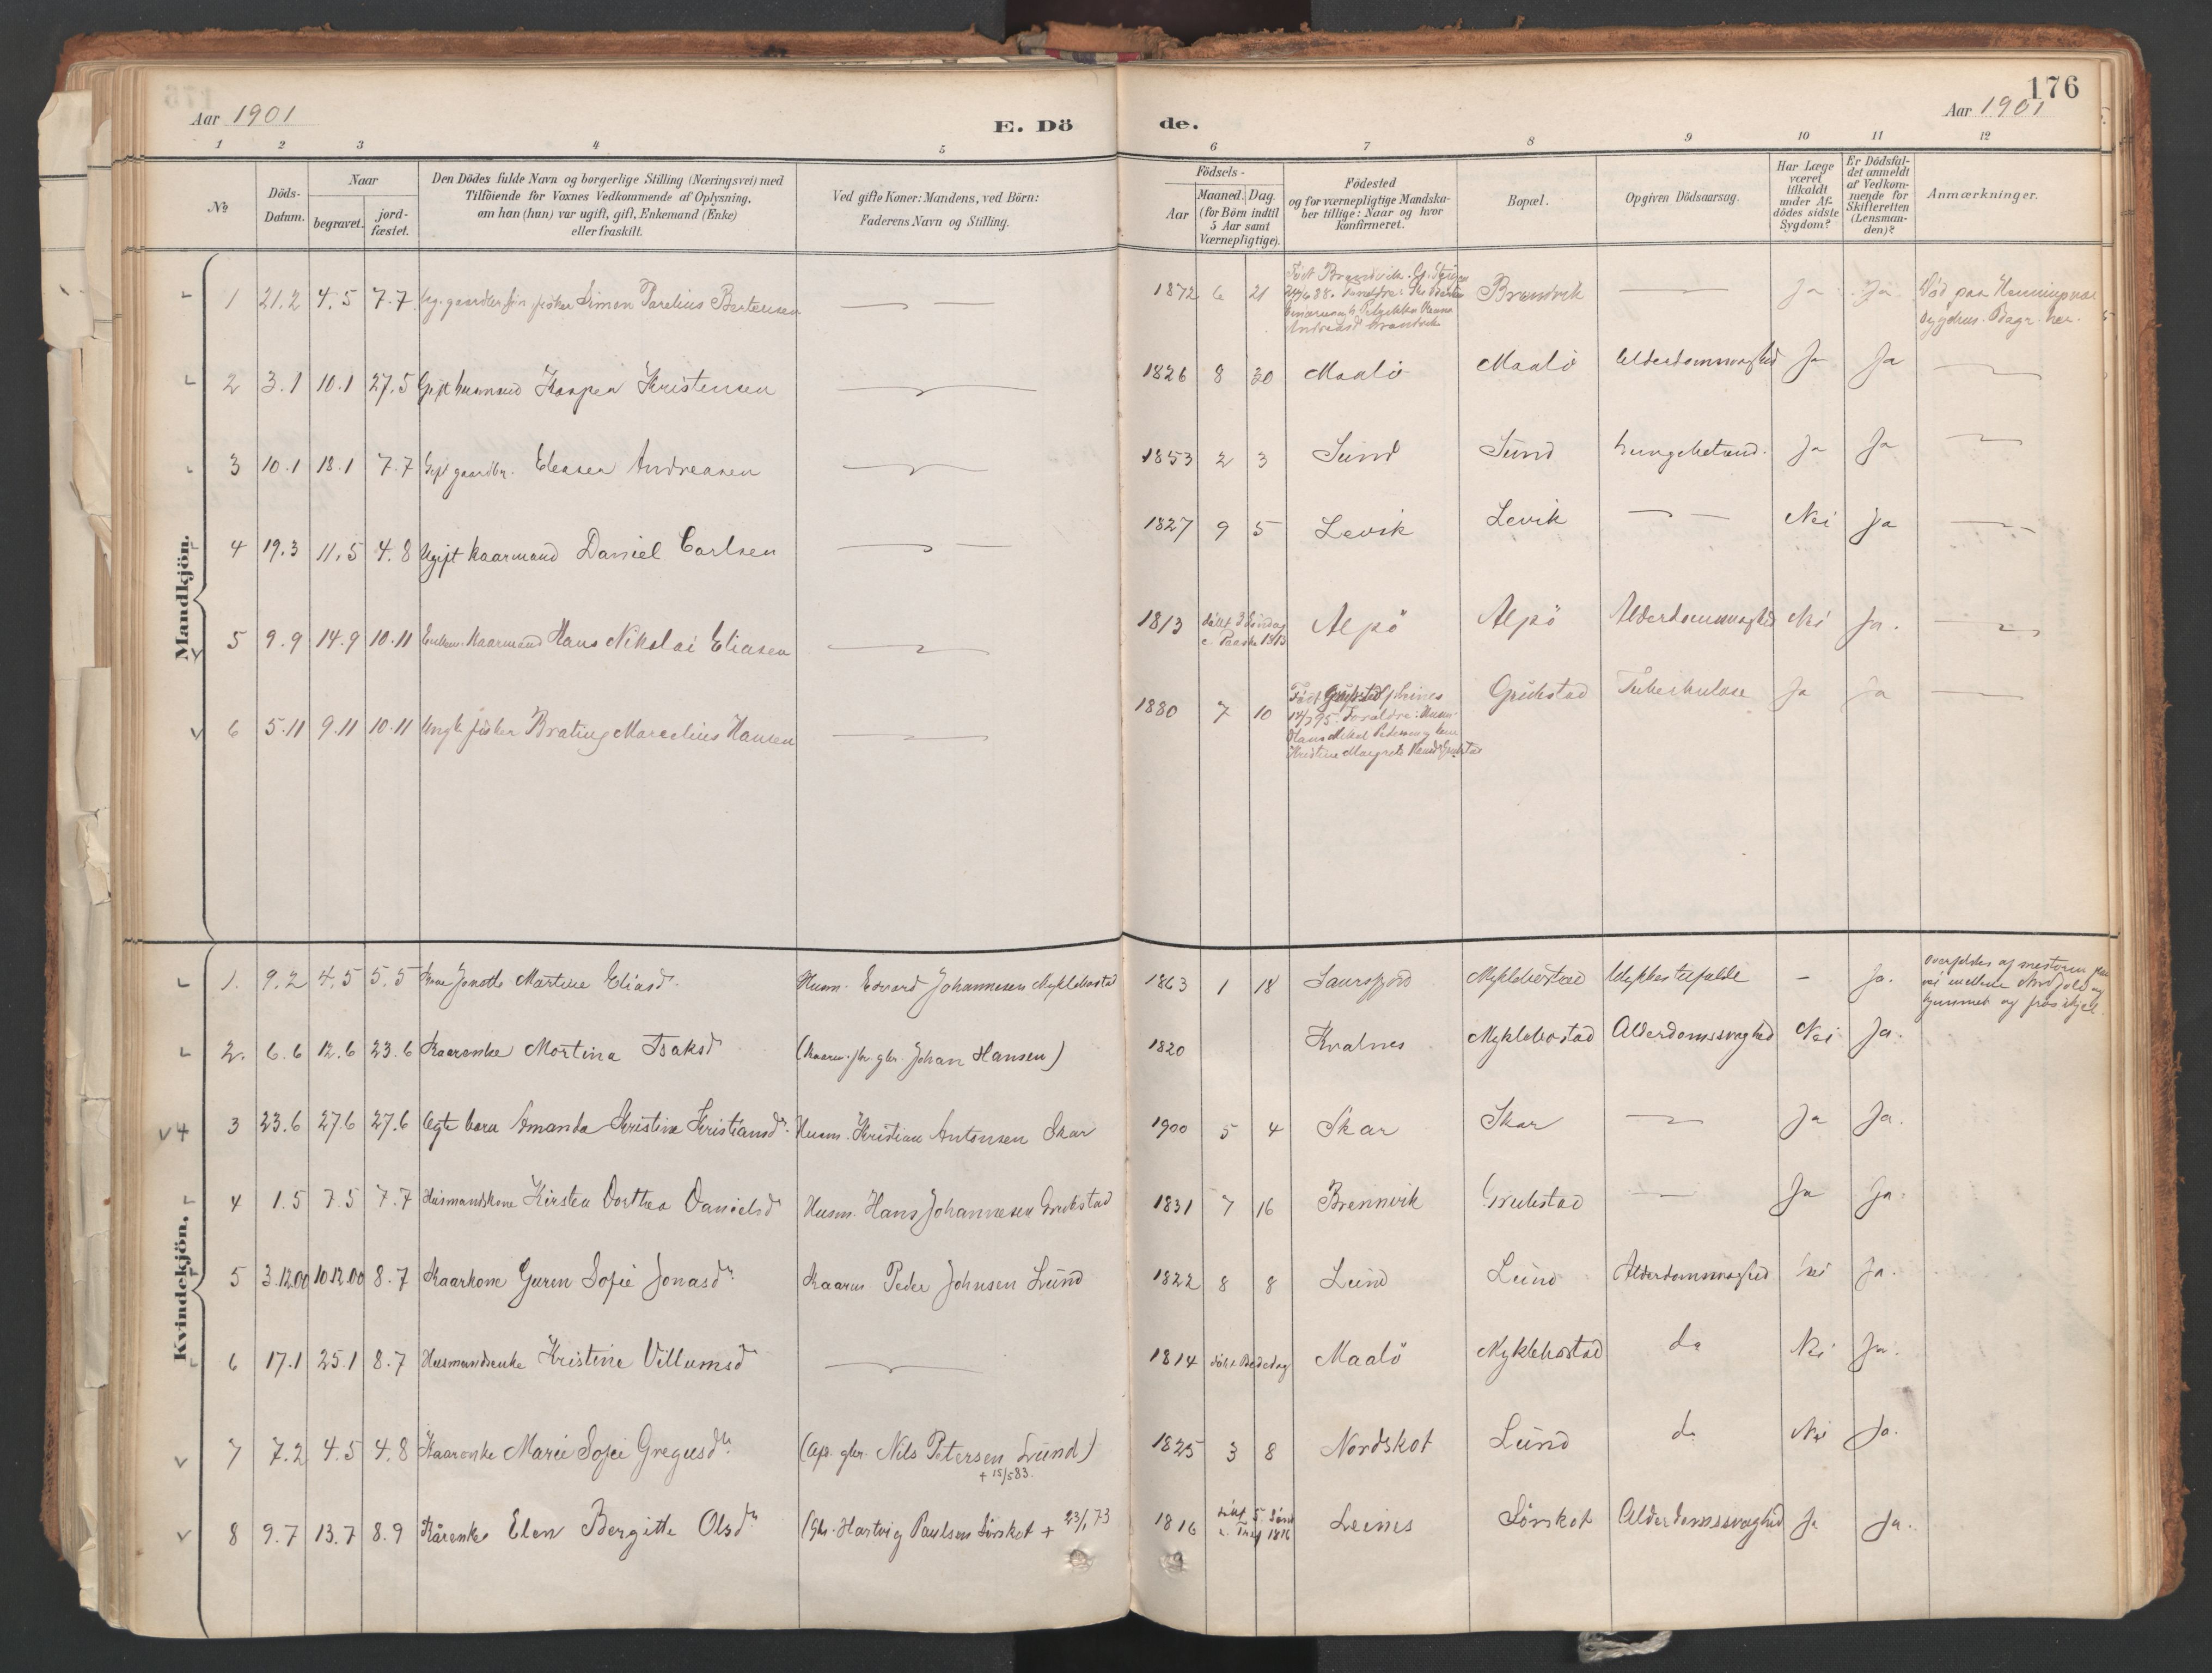 176
Aar 1901
E. Dö
de.
Aar 1901
1 2 3 4 5 6 7 8 9 10 11 12
No
Döds-
Datum.
Naar
begravet.
jord-
fæstet.
Den Dödes fulde Navn og borgerlige Stilling (Næringsvei) med
Tilföiende for Voxnes Vedkommende af Oplysning,
om han (hun) var ugift, gift, Enkemand (Enke)
eller fraskilt.
Ved gifte Koner: Mandens, ved Börn:
Faderens Navn og Stilling.
Födsels-
Aar
Maaned. Dag.
(for Börn indtil
5 Aar samt
Værnepligtige).
Födested
og for værnepligtige Mandska-
ber tillige: Naar og hvor
konfirmeret.
Bopæl.
Opgiven Dödsaarsag.
Har Læge
været
tilkaldt
under Af-
dödes sidste
Sygdom?
Er Dödsfal-
det anmeldt
af Vedkom-
mende for
Skifteretten
(Lensman-
den)?
Anmærkninger.
Mandkjön.
1 21.2 4.5 7.7 Simon Parelius Bertensen 1872 6 21 Født Brandvik Brandvik Ja Ja Død paa Henningsvær
Sygehus. Begr. her.
2 3.1 10.1 27.5 Gift husmand Kasper Kristensen 1826 8 30 Maalö Maalö Alderdomssvaghed Ja Ja
3 10.1 18.1 7.7 Gift gaardbr. Eleaser Andreasen 1853 2 3 Sund Sund Lungebetænd. Ja Ja
4 19.3 11.5 4.8 Ugift kaarmand Daniel Carlsen 1827 9 5 Levik Levik Nei Ja
5 9.9 14.9 10.11 Enkem. Kaarmand Hans Nikolai Eliasen 1813 döbt 3 Söndag
e. Paaske 1813 Alpö Alpö Alderdomssvaghed Nei Ja.
6 5.11 9.11 10.11 Ungk. fisker Brating Marcelius Hansen 1880 7 10 Født Grükstad
14/7 95. Foraldre: Husm.
Hans Mikal Pedersen
Kristine Margrete Grükstad Tuberkulose Ja Ja
Kvindekjön.
1. 9.2 4.5 5.5 Martine Eliasd. Husm. Edvard Johannesen Myklebostad 1863 1 18 Saursfjord Myklebostad Ulykkestilfælde - Ja. Overfaldes af snestorm
2. 6.6 12.6 23.6 Kaarenke Mortina Isaksd (Kaarm. gbr. Johan Hansen) 1820 Kvalnes Myklebostad Alderdomssvaghed Nei Ja.
3 23.6 27.6 27.6 Ægte barn Amanda Kristine Kristiansd. Husm. Kristian Antonsen Skar 1900 5 4 Skar Skar Ja Ja.
4 1.5 7.5 7.7 Husmandskone Kirsten Dorthea Danielsd Husm. Hans Johannesen Grükstad 1831 7 16 Brennvik Grükstad Ja Ja.
5 3.12.00 10.12.00 8.7 Kaarkone Guren Sofie Jonasdr. Kaarm Peder Johnsen Lund 1822 8 8 Lund Lund Alderdomssvaghed Nei Ja.
6 17.1 25.1 8.7 Husmandsenke Kristine Villumsd 1814 döbt Bededag Maalö Myklebostad do Nei Ja.
7 7.2 4.5 4.8 Kaarenke Marie Sofie Gregusdr. (Gbr. Nils Petersen Lund)
+ 15/5 83. 1825 3 8 Nordskot Lund do Nei Ja.
8 9.7 13.7 8.9 Kårenke Elen Bergitte Olsdr (Gbr. Hartvig Paulsen Sörskot + 23/1 73 1816 döbt 5 Sönd
e. Tref 1816 Leines Sörskot Alderdomssvaghed Ja Ja.